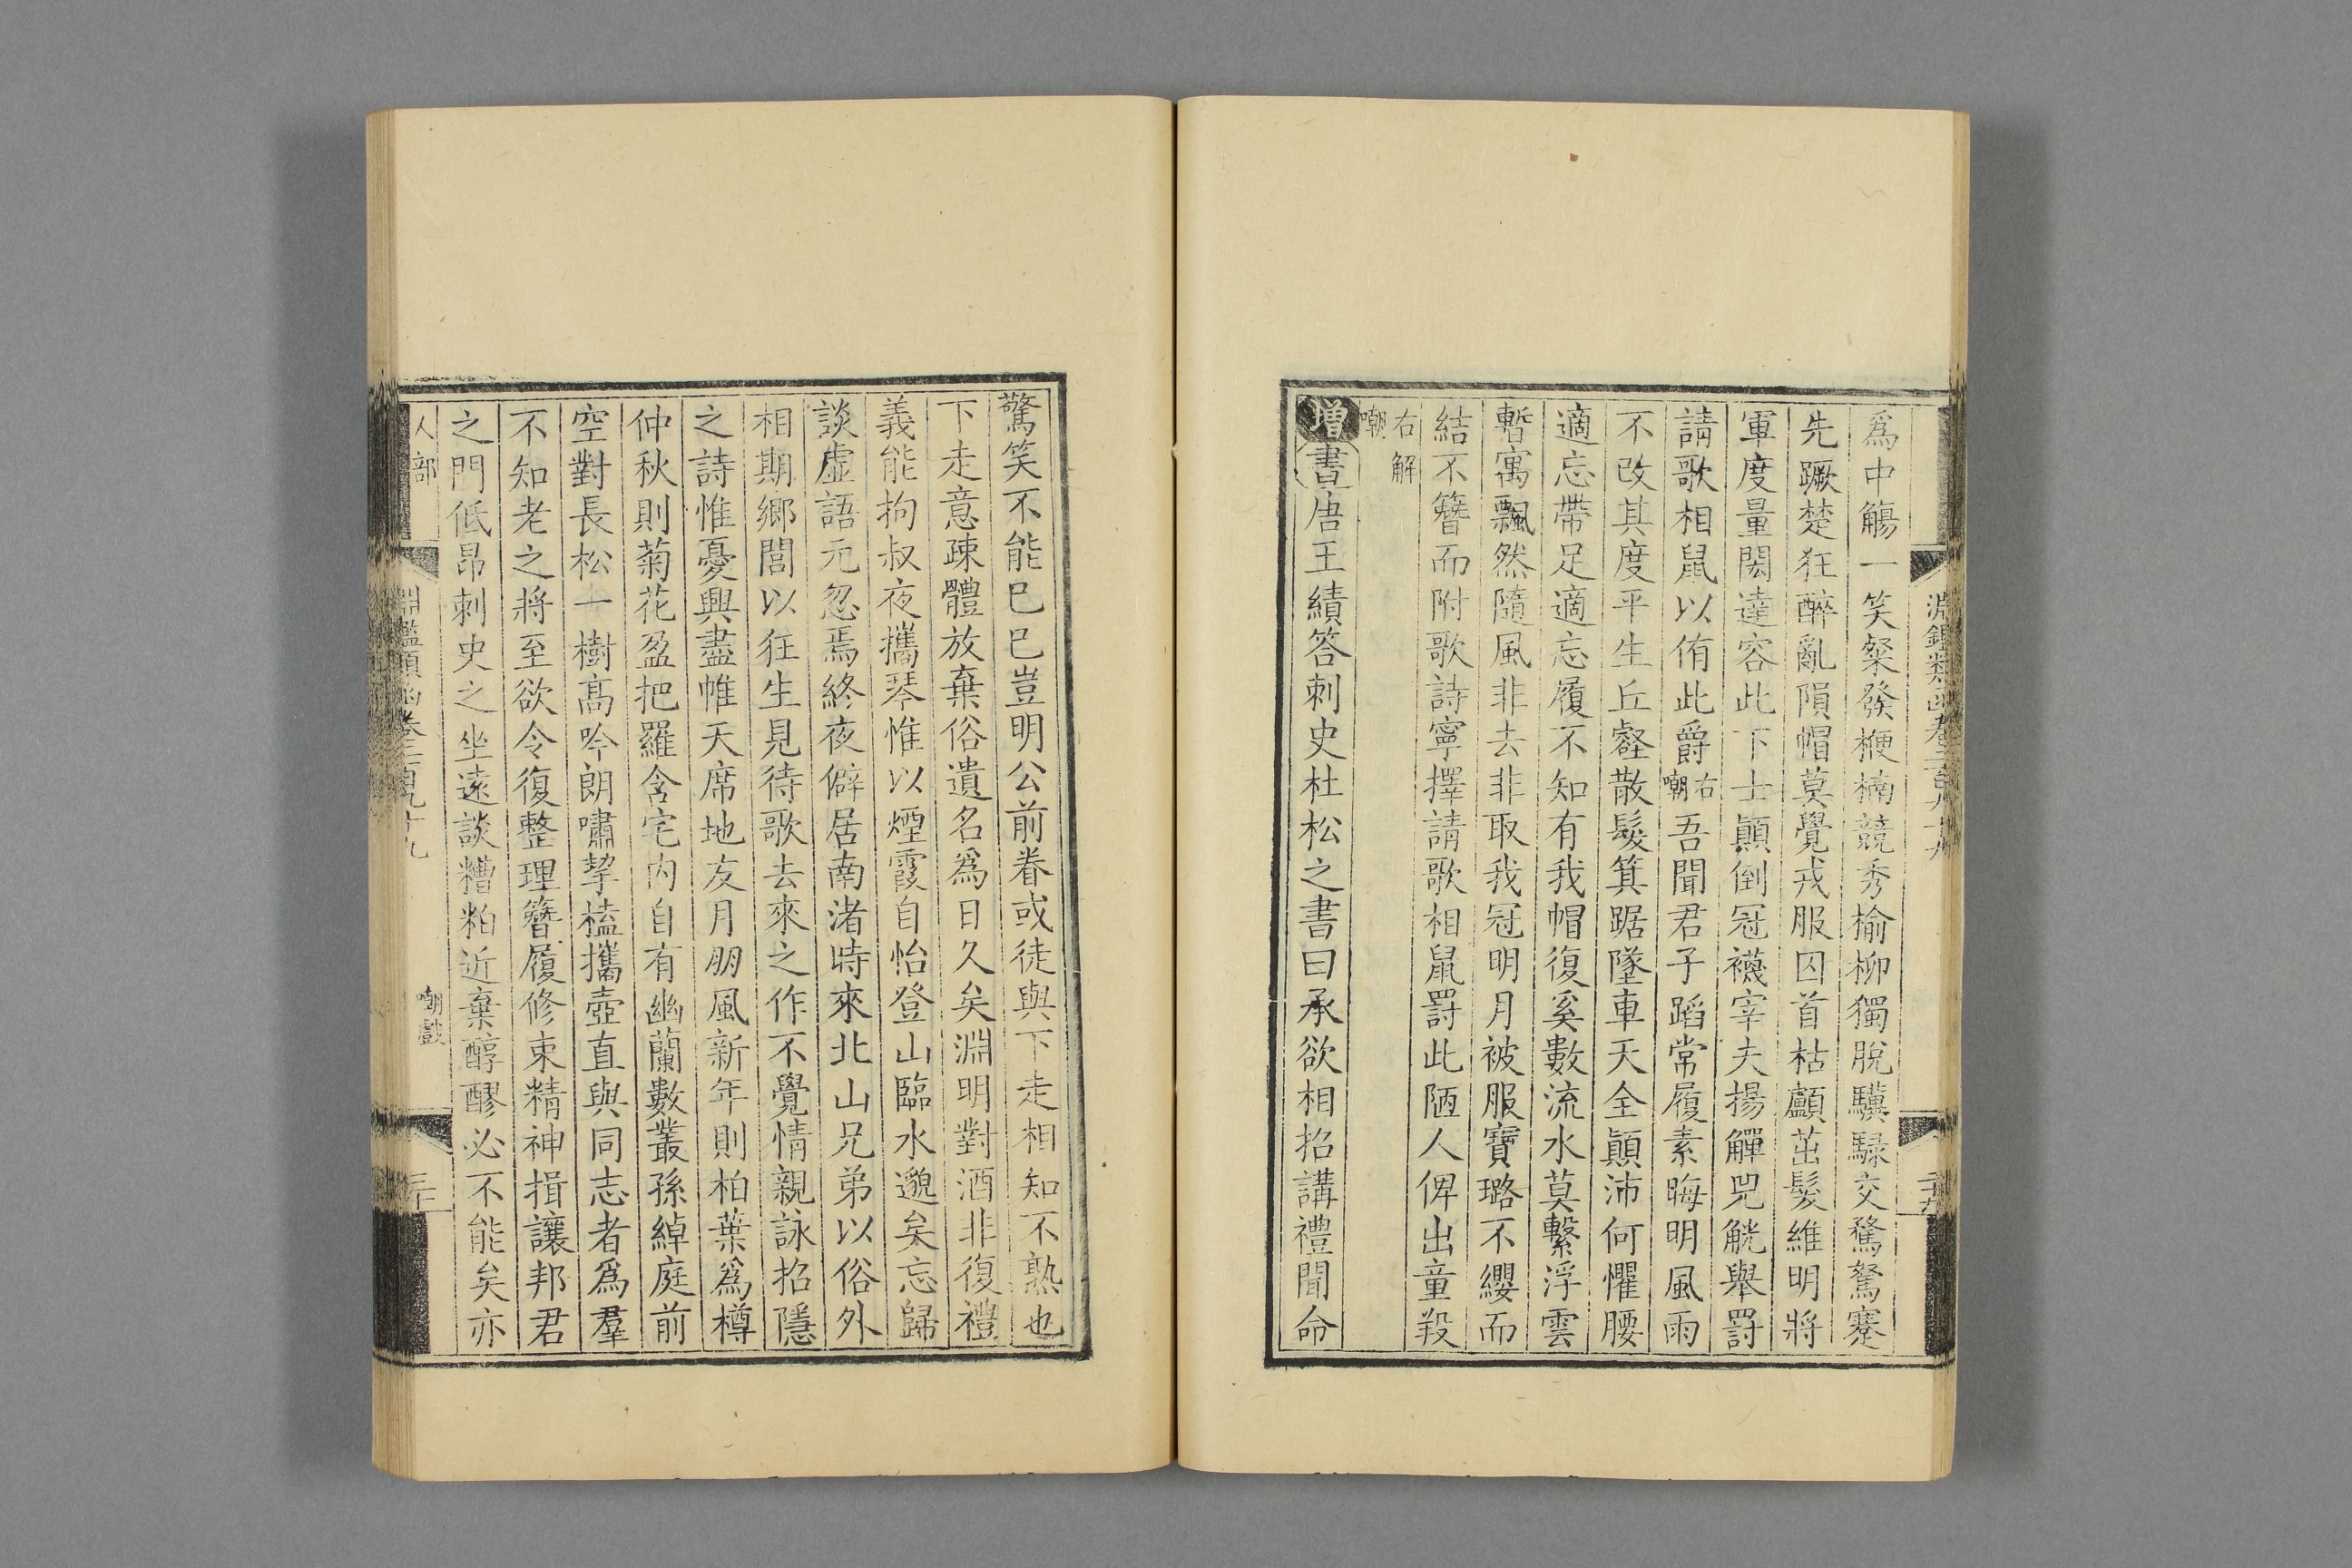 爲中觴一笑粲發楩楠競秀榆柳獨脫驥騄交騖駑蹇
先蹶楚狂醉亂隕帽莫覺戎服囚首枯顱茁髮維明將
軍度量閎達容此下士顚倒冠襪宰夫揚觶兕觥舉罰
請歌相鼠以侑此爵右嘲吾聞君子蹈常履素晦明風雨
不改其度平生丘壑散髮箕踞墜車天全顚沛何懼腰
適忘帶足適忘履不知有我帽復奚數流水莫繫浮雲
暫寓飄然隨風非去非取我冠明月被服寶璐不纓而
結不簪而附歌詩寧擇請歌相鼠罰此陋人俾出童羖
右解嘲
增書唐王績答刺史杜松之書曰承欲相招講禮聞命
驚笑不能已已豈明公前眷或徒與下走相知不熟也
下走意疎體放棄俗遺名爲日久矣淵明對酒非復禮
義能拘叔夜攜琴惟以煙霞自怡登山臨水邈矣忘歸
談虛語元忽焉終夜僻居南渚時來北山兄弟以俗外
相期鄉閭以狂生見待歌去來之作不覺情親詠招隱
之詩惟憂興盡帷天席地友月朋風新年則柏葉爲樽
仲秋則菊花盈把羅含宅內自有幽蘭數叢孫綽庭前
空對長松一樹高吟朗嘯挈榼攜壺直與同志者爲羣
不知老之將至欲令復整理簪履修束精神揖讓邦君
之門低昂刺史之坐遠談糟粕近棄醇醪必不能矣亦
人部
淵鑑類函卷三百九十九
嘲戲
三十